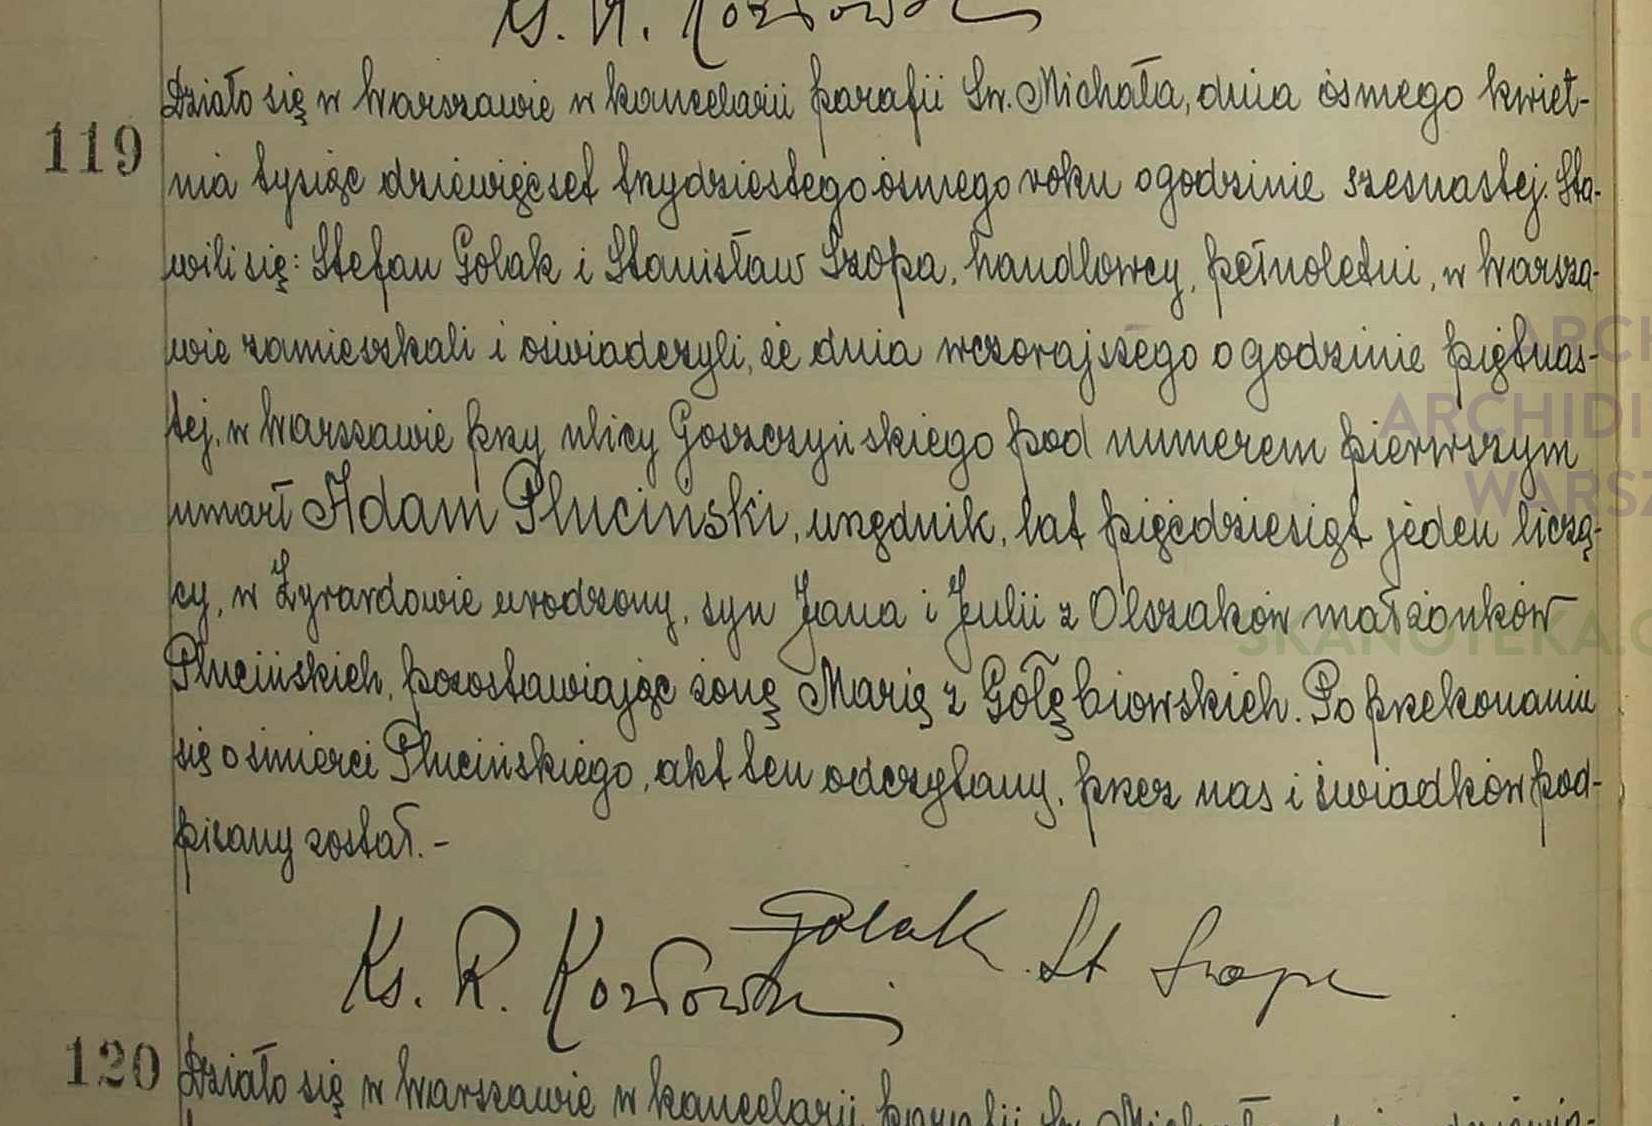 Ks. R. Kozłowski
Działo się w Warszawie w kancelarii parafii Św. Michała, dnia ósmego kwiet-
119
nia tysiąc dziewięćset trzydziestego ósmego roku o godzinie szesnastej. Sta-
wili się: Stefan Golak i Stanisław Szopa, handlowcy, pełnoletni, w Warsza-
wie zamieszkali i oświadczyli, że dnia wczorajszego o godzinie piętnas-
tej, w Warszawie przy ulicy Goszczyńskiego pod numerem pierwszym
umarł Adam Pluciński, urzędnik, lat pięćdziesiąt jeden liczą-
cy, w Żyrardowie urodzony, syn Jana i Julii z Olszaków małżonków
Plucińskich, pozostawiając żonę Marię z Gołębiowskich. Po przekonaniu
się o śmierci Plucińskiego, akt ten odczytany, przez nas i świadków pod-
pisany został. -
Golak St Szopa
Ks. R. Kozłowski
120
Działo się w Warszawie w kancelarii parafii Św. Michała
ARCH
ARCHIDI
WARSZ
SKANOTEKA.G